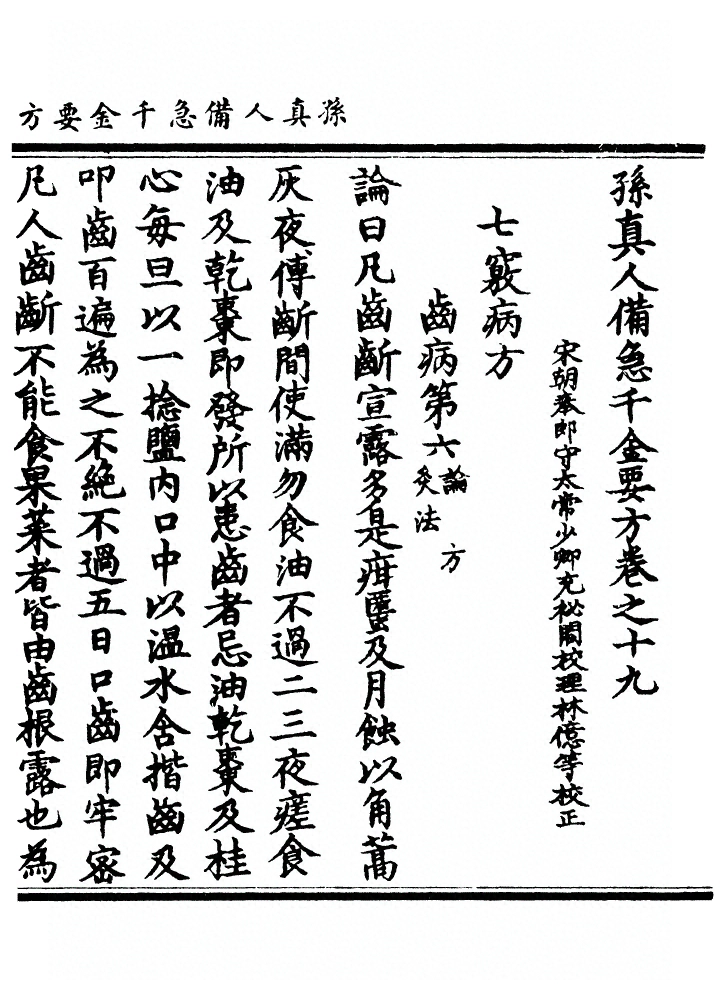 孫真人備急千金要方
孫真人備急千金要方卷之十九
宋朝奉郎守太常少卿充秘閣校理林億等校正
七竅病方
齒病第六論方灸法
論曰凡齒齗宣露多是疳䘌及月蝕以角蒿
灰夜傅齗間使滿勿食油不過二三夜瘥食
油及乾棗即發所以患齒者忌油乾棗及桂
心每旦以一捻鹽內口中以溫水含揩齒及
叩齒百遍為之不絕不過五日口齒即牢密
凡人齒齗不能食果菜者皆由齒根露也為